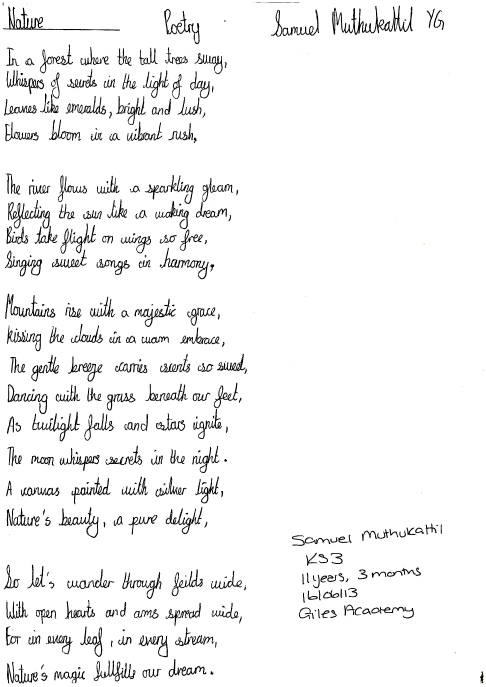 Nature Poetry Samuel Muthukattil YG
In a forest where the tall trees sway,
Whispers of secrets in the light of day,
Leaves like emeralds, bright and lush,
Flowers bloom in a vibrant rush,
The river flows with a sparkling gleam,
Reflecting the sun like a waking dream,
Birds take flight on wings so free,
Singing sweet songs in harmony,
Mountains rise with a majestic grace,
kissing the clouds in a warm embrace,
The gentle breeze carries scents so sweet,
Dancing with the grass beneath our feet,
As twilight falls and stars ignite,
The moon whispers secrets in the night.
A canvas painted with silver light,
Nature's beauty, a pure delight,
So let's wander through feilds wide,
With open hearts and arms spread wide,
For in every leaf, in every stream,
Nature's magic fullfills our dream.
Samuel Muthukattil
KS3
11 years, 3 months
16/06/13
Giles Academy